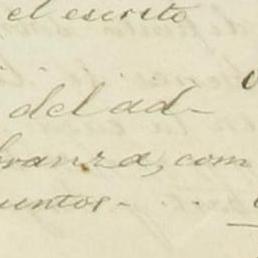 el escrito
del ad-
branza, com
untos-